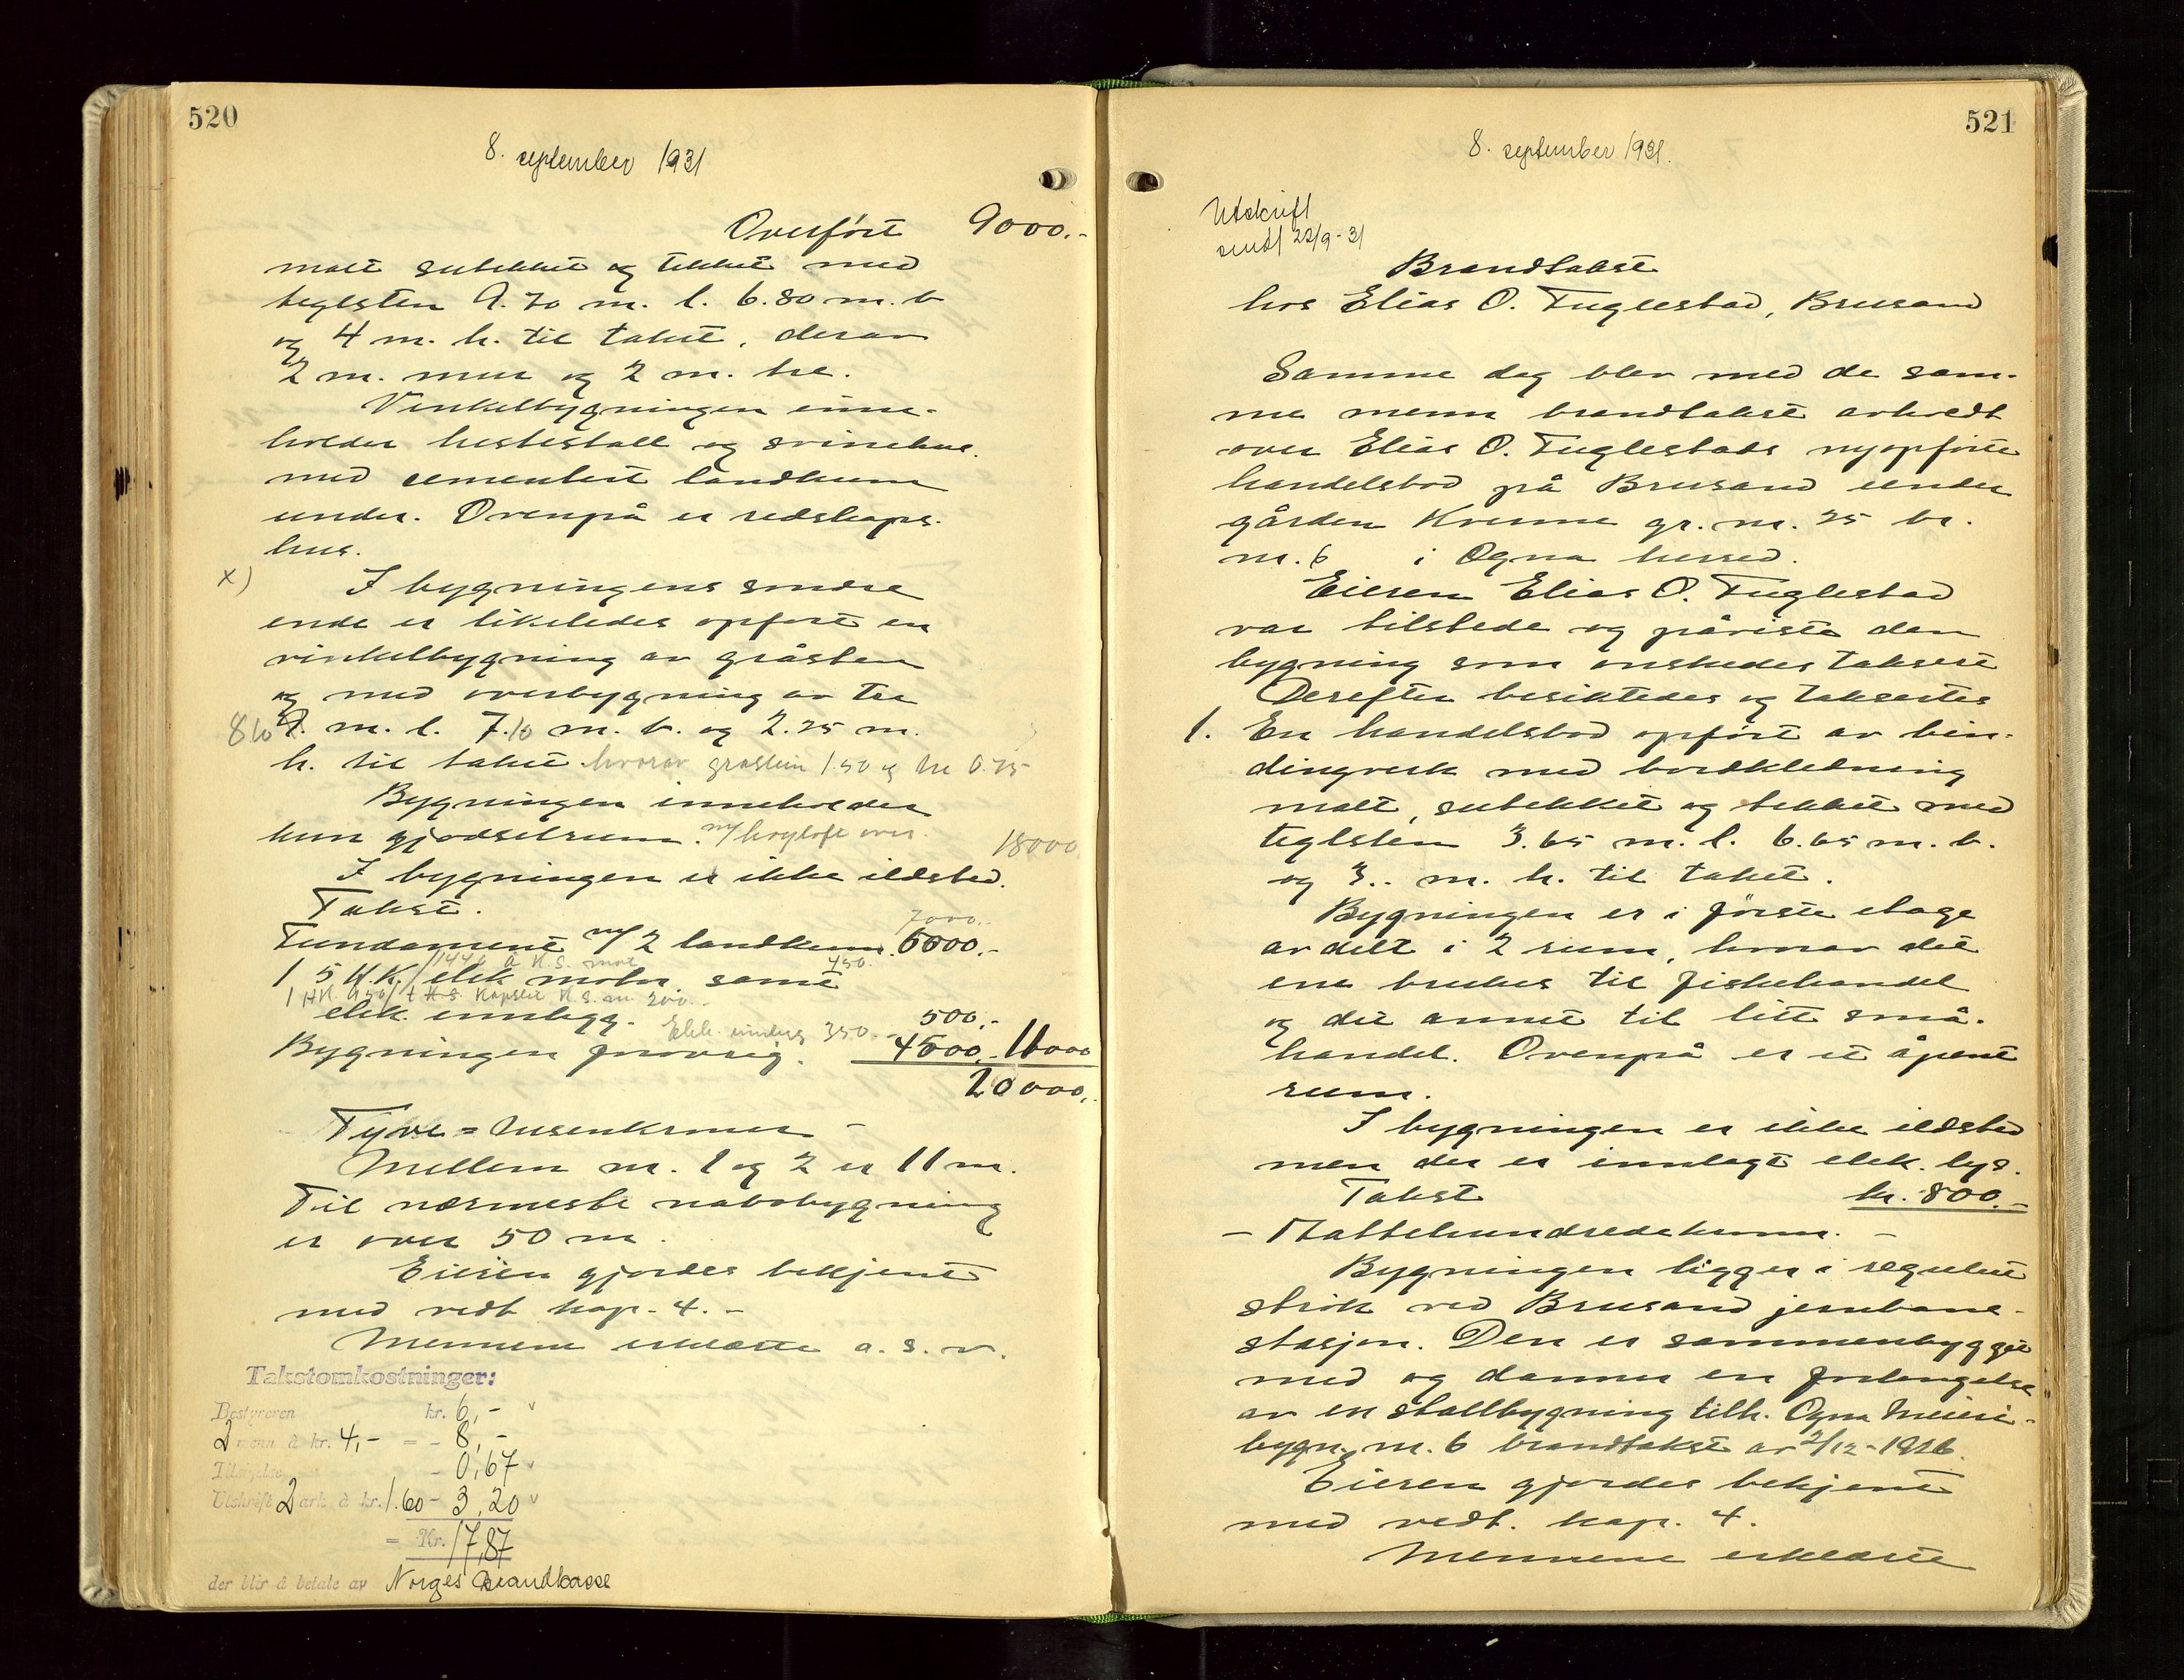 520
8. september 1931
Overført 9000.-
malt sutekket og tekket med
teglsten 9.70 m. l. 6.80 m. b
og 4 m. h. til taket, derav
2 m. mur og 2 m. tre.
Vinkelbygningen inne-
holder hestestall og svinehus.
med cementert landkum
under. Ovenpå er redskaps-
hus.
x) I bygningens søndre
ende er likeledes opført en
vinkelbygning av gråsten
og med overbygning av tre
810 9. m. l. 7.10 m. b. og 2.25 m.
h. til taket hvorav gråstein 1.50 og tre 0.75
Bygningen inneholder
kun gjødselrum. m/høyloft over. 18000.
I bygningen er ikke ildsted.
Takst.
7000.-
Fundament m/ 2 landkum. 6000.-
1 5 H.K. elek motor samt
elek. innlegg. 500.-
Elek. innlegg 350.-
Bygningen forøvrig. 4500.- 11000
20000.-
Tyve = tusenkroner -
Mellem nr. 1 og 2 er 11 m.
Til nærmeste nabobygning
er over 50 m.
Eieren gjordes bekjent
med vedt. kap. 4. -
Mennene erklærte a. s. v.
Takstomkostninger:
Bestyreren kr. 6,-
2 menn à kr. 4,- = - 8,-
- 0,67
Utskrift 2 ark à kr. 1.60 - 3,20
= Kr. 17,87
der blir å betale av Norges Brandkasse
521
8. september 1931.
Utskrift
sendt 22/9-31
Brandtakst
hos Elias O. Fuglestad, Brusand
Samme dag blev med de sam-
me menn brandtakst avholdt
over Elias O. Fuglestads nyopførte
handelsbod på Brusand under
gården Kvemme gr. nr. 25 br.
nr. 6 i Ogna herred.
Eieren Elias O. Fuglestad
var tilstede og påviste den
bygning som ønskedes taksert
Derefter besiktedes og taksertes
1. En handelsbod opført av bin-
dingverk med bordkledning
malt, sutekket og tekket med
teglsten 3.65 m. l. 6.65 m. b.
og 3.. m. h. til taket.
Bygningen er i første etage
avdelt i 2 rum, hvorav det
ene brukes til fiskehandel
og det annet til litt små-
handel. Ovenpå er et åpent
rum.
I bygningen er ikke ildsted
men der er innlagt elek. lys.
Takst kr. 800.-
- Åttehundredekroner. -
Bygningen ligger i regulert
strøk ved Brusand jernbane-
stasjon. Den er sammenbygget
med og danner en forlengelse
av en stallbygning tilh. Ogna Meieri-
bygn. nr. 6 brandtakst av 2/12-1926.
Eieren gjordes bekjent
med vedt. kap. 4.
Mennene erklærte